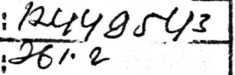 : 12449543
: 261.2